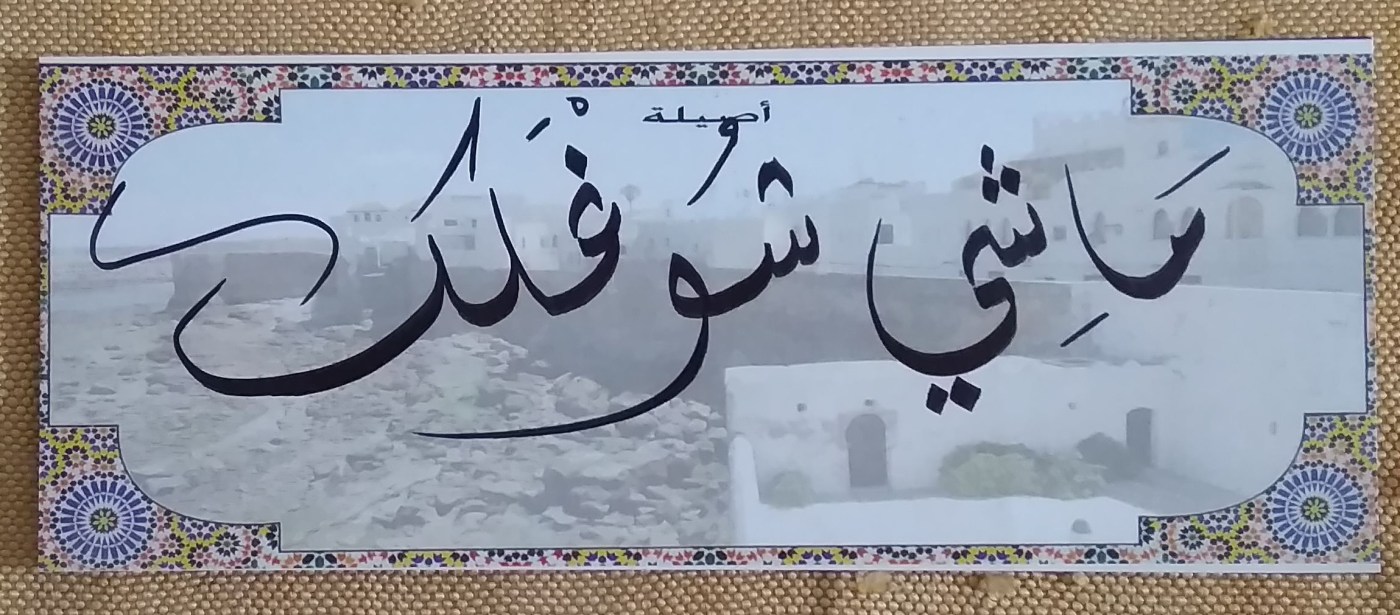 أصيلة
مَاشِي شُوغْلَك